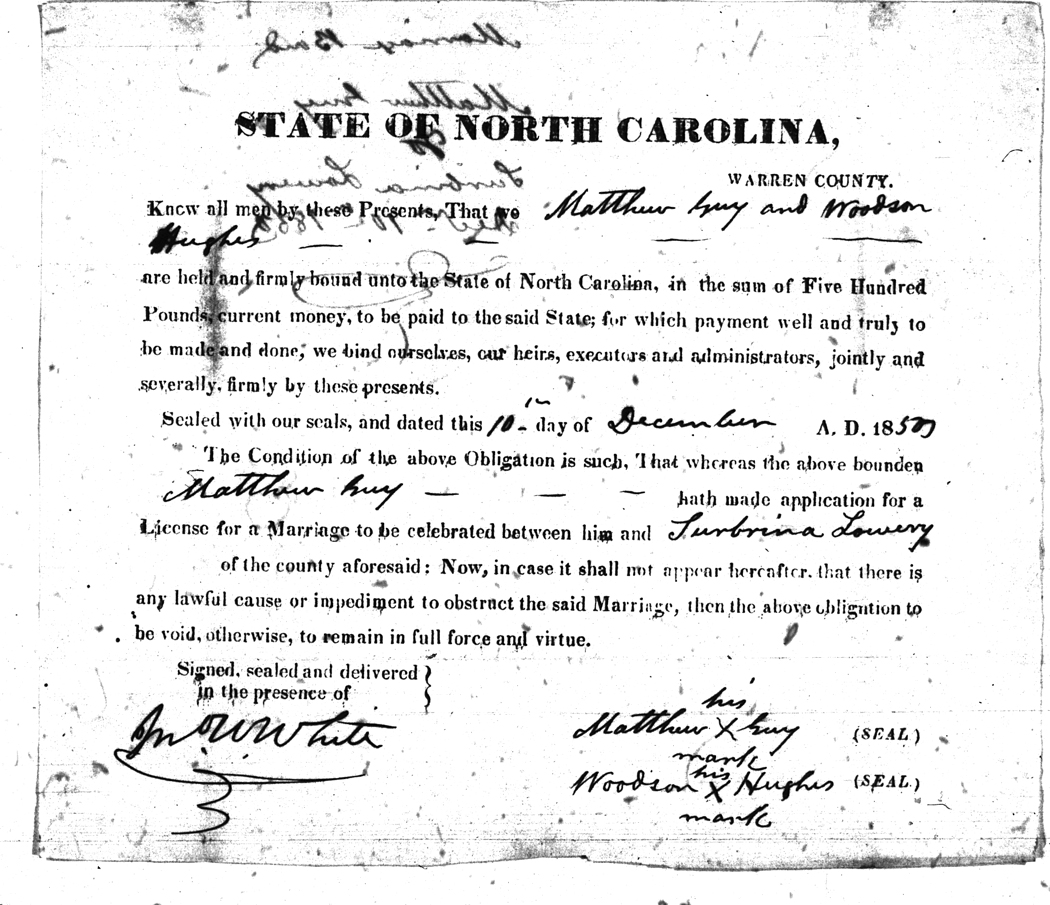 STATE OF NORTH CAROLINA,
WARREN COUNTY.
Know all men by these Presents, That we Matthew Guy and Woodson
Hughes
are held and firmly bound unto the State of North Carolina, in the sum of Five Hundred
Pounds, current money, to be paid to the said State; for which payment well and truly to
be made and done, we bind ourselves, our heirs, executors and administrators, jointly and
severally, firmly by these presents.
Sealed with our seals, and dated this 10th day of December A. D. 185
The Condition of the above Obligation is such, That whereas the above bounden
Matthew Guy — — — hath made application for a
License for a Marriage to be celebrated between him and Surbrina Lowery
of the county aforesaid: Now, in case it shall not appear hereafter, that there is
any lawful cause or impediment to obstruct the said Marriage, then the above obligation to
be void, otherwise, to remain in full force and virtue.
Signed, sealed and delivered
in the presence of
Jno W White
his
Matthew X Guy (SEAL)
mark
his
Woodson X Hughes (SEAL)
mark